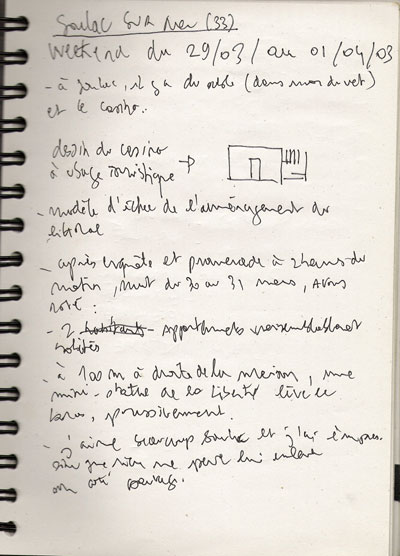 Soulac sur mer (33)
Weekend du 29/03/ au 01/04/03
- à Soulac, il y a du sable (dans mon duvet)
et le casino..
dessin du casino
à usage touristique →
- modèle d'échec de l'aménagement du
littoral
- après enquête et promenade à 2 heures du
matin, nuit du 30 au 31 mars, avons
noté :
- 2 habitants - appartements vraisemblablement
habités
- à 100 m à droite de la maison, une
mini-statue de la liberté lève le
bras, poussivement.
- j'aime beaucoup Soulac et j'ai l'impres-
sion que rien ne peut lui enlever
son côté